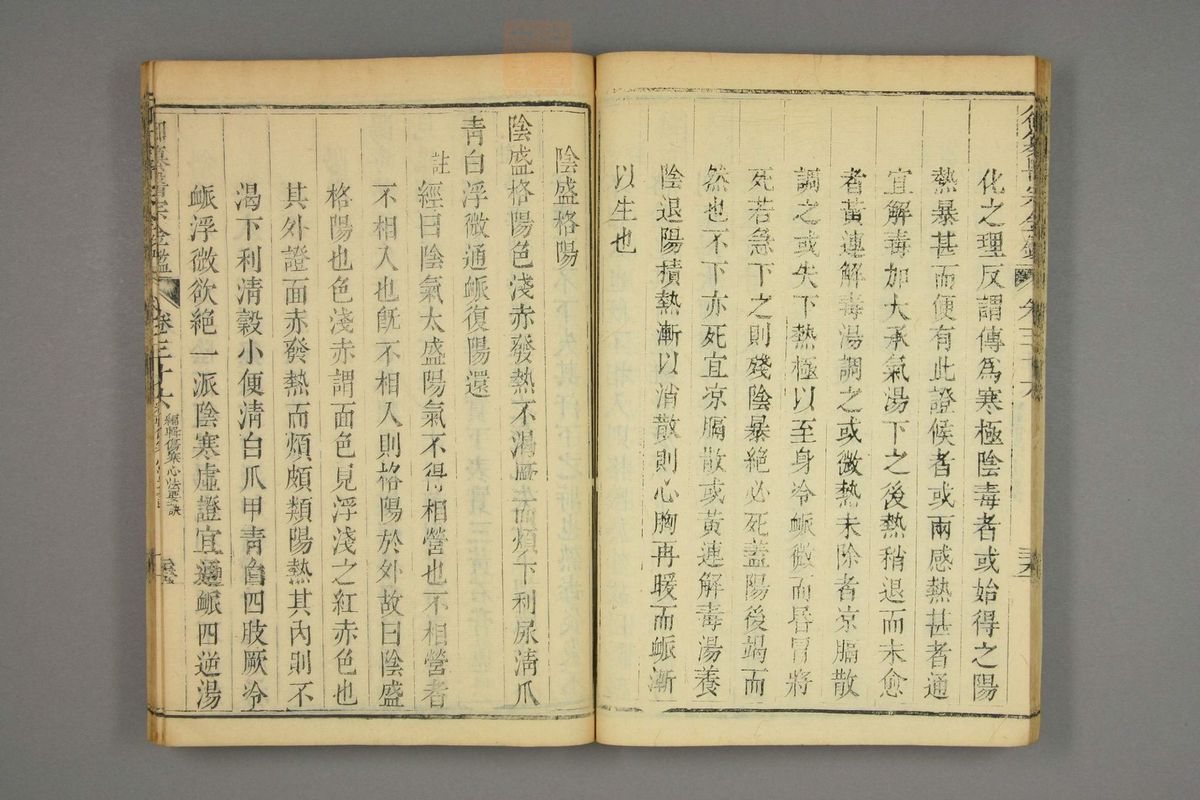 化之理反謂傳爲寒極陰毒者或始得之陽
熱暴甚而便有此證候者或兩感熱甚者通
宜解毒加大承氣湯下之後熱稍退而未愈
者黃連解毒湯調之或微熱未除者凉膈散
調之或失下熱極以至身冷脈微而昏冒將
死若急下之則殘陰暴絕必死蓋陽後竭而
然也不下亦死宜凉膈散或黃連解毒湯養
陰退陽積熱漸以消散則心胸再暖而脈漸
以生也
陰盛格陽
陰盛格陽色淺赤發熱不渴厥而煩下利尿淸爪
靑白浮微通脈復陽還
註 經曰陰氣太盛陽氣不得相營也不相營者
不相入也旣不相入則格陽於外故曰陰盛
格陽也色淺赤謂面色見浮淺之紅赤色也
其外證面赤發熱而煩頗類陽熱其內則不
渴下利淸穀小便淸白爪甲靑白四肢厥冷
脈浮微欲絕一派陰寒虛證宜通脈四逆湯
御纂醫宗金鑑 卷三十八 編輯傷寒心法要訣